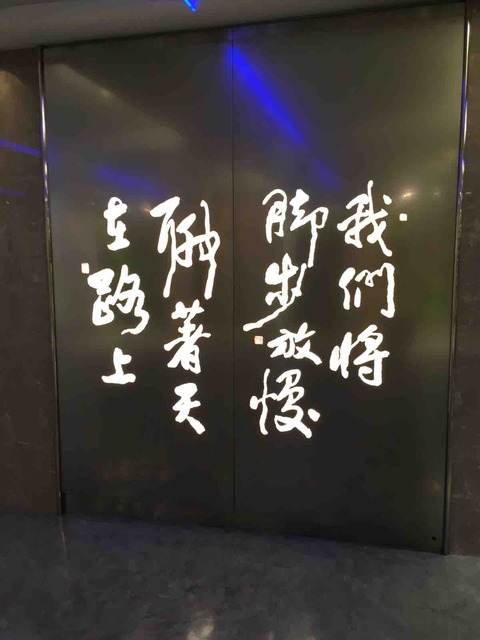 我們將
脚步放慢
聊著天
在路上